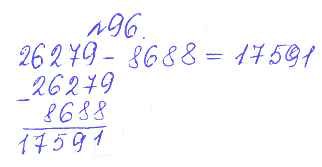 №96.
26279 - 8688 = 17591
-26279
8688
17591